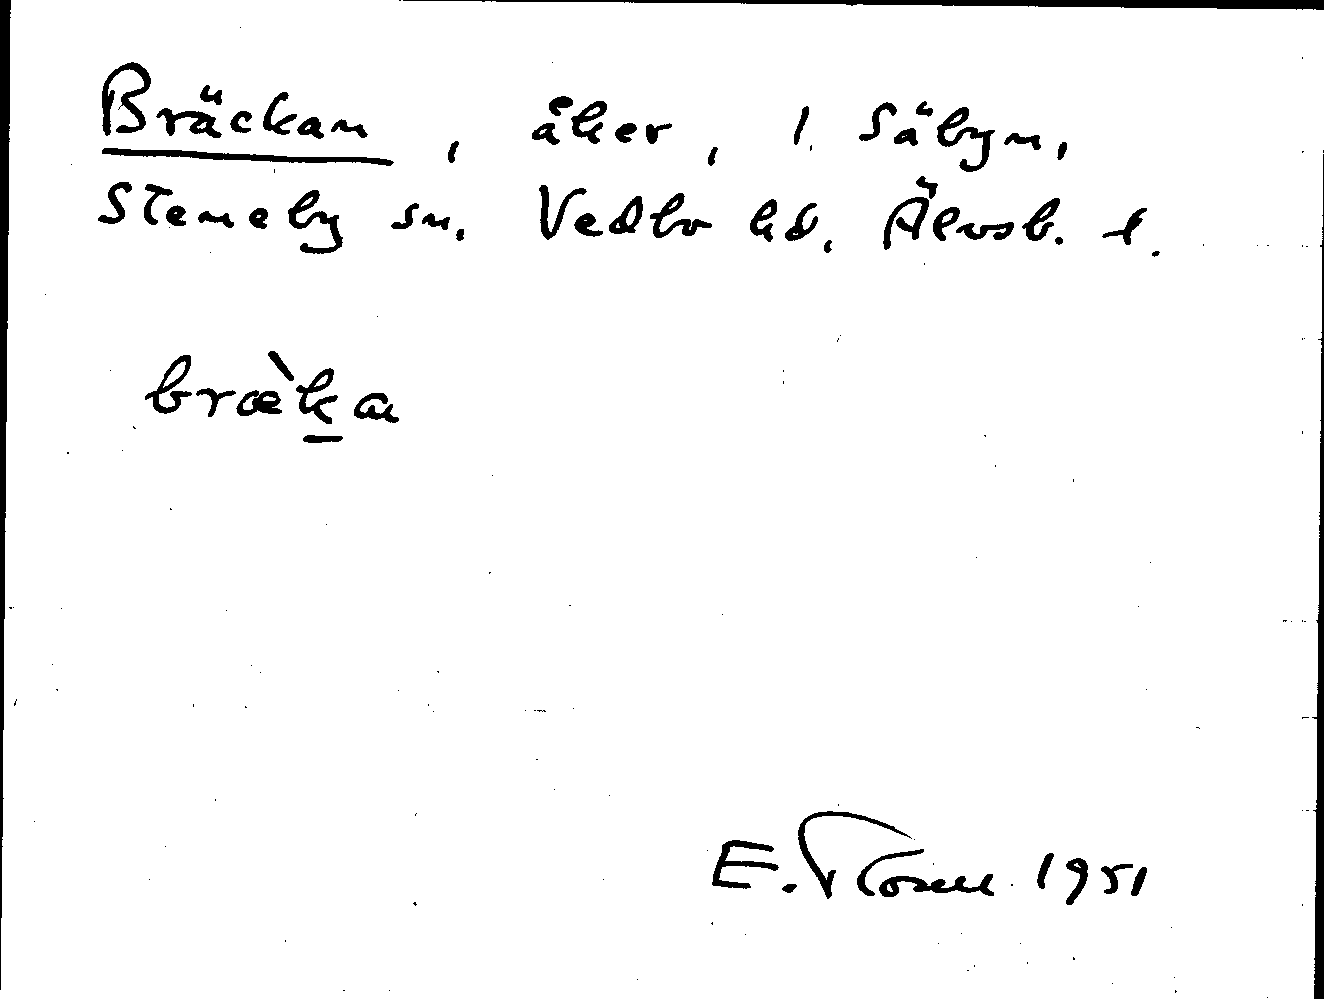 Bräckan, åker, 1 Säbyn,
Steneby sn. Vedbo hd. Älvsb. l.
bræ`ka
E. 1951